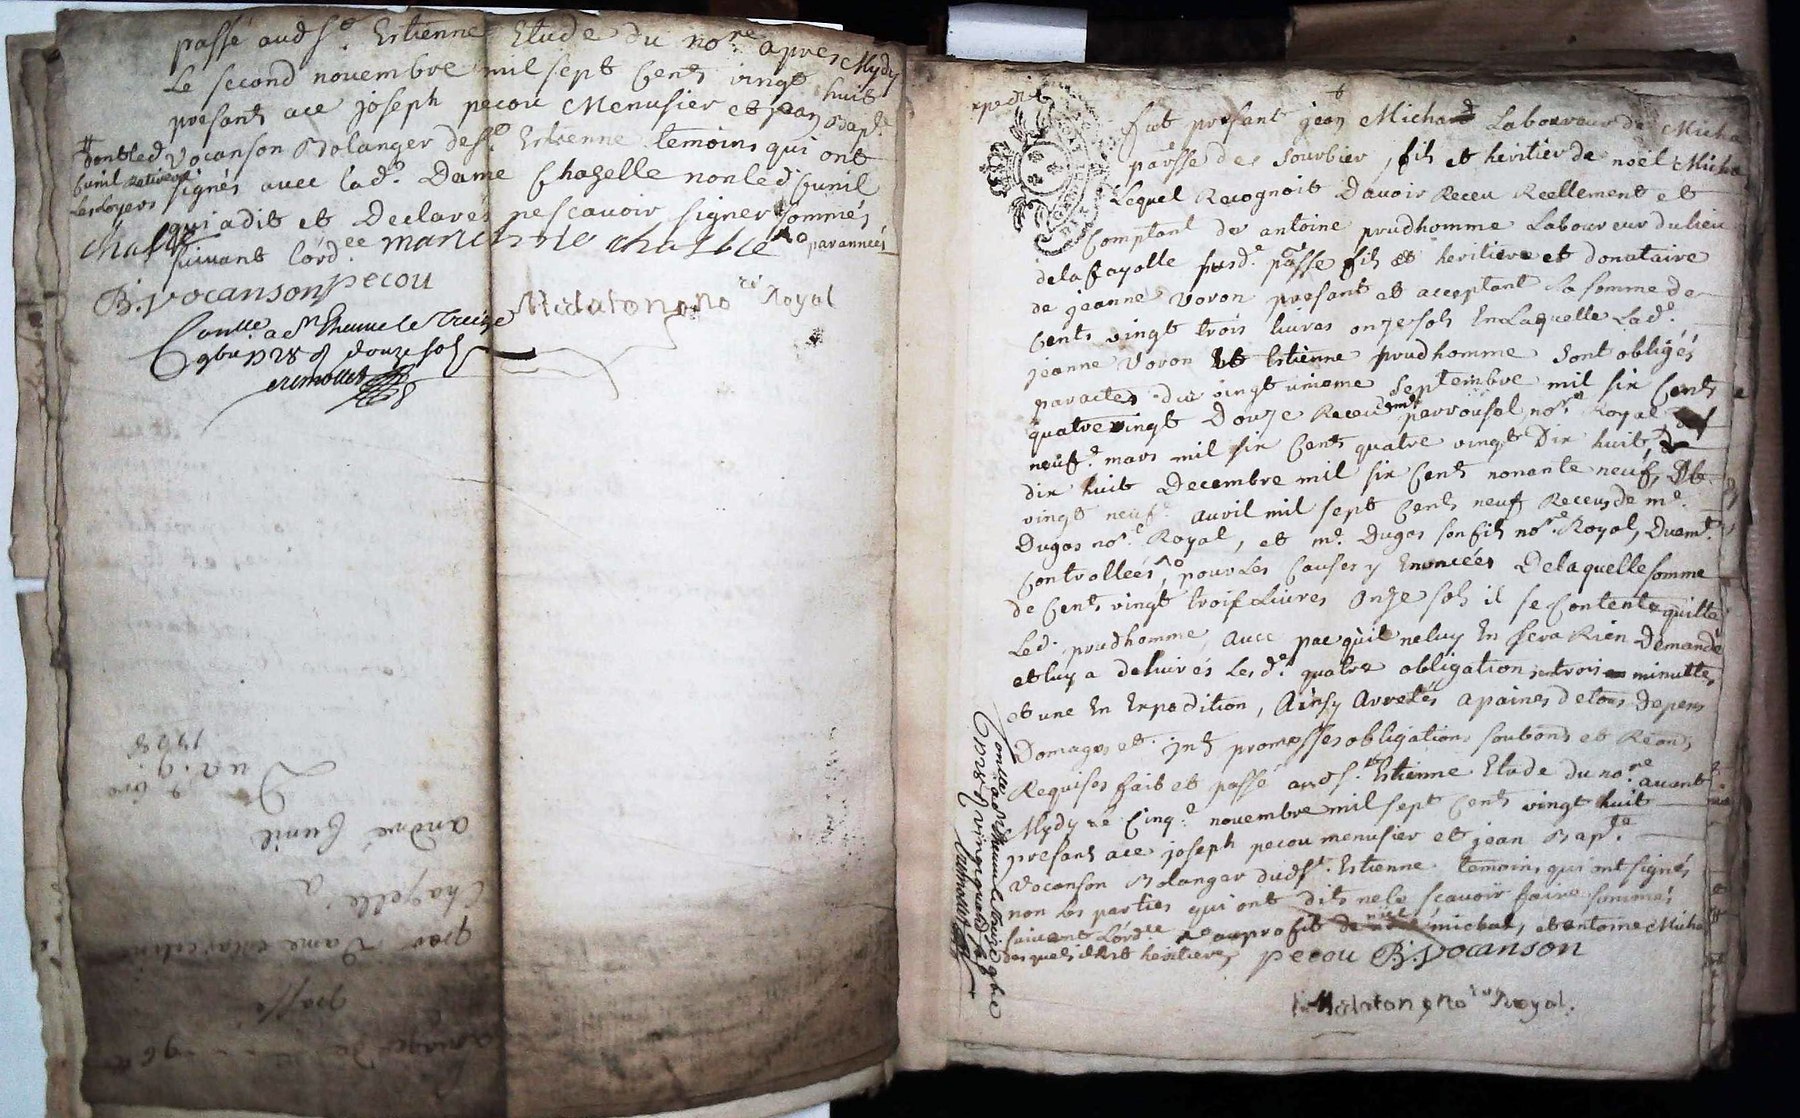 passé aud St. Estienne Etude du nore. apres Mydy
Le second novembre mil sept Cents vingt huit
presants ace joseph pecou Menusier et jean Bapte.
vocanson Bolanger de St. Estienne temoins qui ont
signés avec lad. Dame Chazelle non led Cunil
qui a dit et Declarés ne scavoir signer sommés
suivant l'ord.ee
dont led
Cunil Retirera
les loyers
par années
B. vocanson pecou
Malaton no.re Royal
Conlle. a St Etienne le treize
9bre 1728 douze sols
1728
andré Cunil
Chazelle a
par Dame marceline
passé
expedié
fut presant jean Michard Laboureur de Micha
parsse des sourbier, fils et heritier de noel Micha
Lequel Recognoit Davoir Receu Reellement et
Comptant de antoine prudhomme Laboureur du lieu
dela fayolle susd. parsse fils et heritier et donataire
de jeanne Voron presant et acceptant la somme de
Cents vingt trois livres onze sols En Laquelle Lad.
jeanne Voron Et Estienne prudhomme sont obligés
par actes du vingt unieme septembre mil six Cents
quatre vingt Douze Receu par rousol nore. Royal
neuf. mars mil six Cents quatre vingt Dix huit,
dix huit Decembre mil six Cents nonante neuf, Et
vingt neuf. avril mil sept Cents neuf Receus de me.
Dugas nore. Royal, et me. Dugas son fils nore. Royal, Duemt.
Controlleés, pour Les Causes y Enoncées De laquelle somme
de Cents vingt trois Livres Onze sols il se Contente quitte
Led. prudhomme, avec pac qu'il ne luy En sera Rien Demandé
et luy a delivrés Les d. quatre obligations, trois en minuttes,
et une En Expedition, Ainsy Arretés a paines de tous Depens
Domages et Jnts promesses obligations soubons et Reons
Requises fait et passé aud St. Estienne Etude du nore. avant
Mydy le Cinqe. novembre mil sept Cents vingt huit
presants ace joseph pecou menusier et jean Bapte.
vocanson Bolanger dud St. Estienne temoins qui ont signés
non Les parties qui ont dits ne le scavoir faire sommés
suivant L'ord.ee au profit de noel michat, et antoine Micha
des quels il est heritier, pecou B. vocanson
Malaton, no.re Royal.